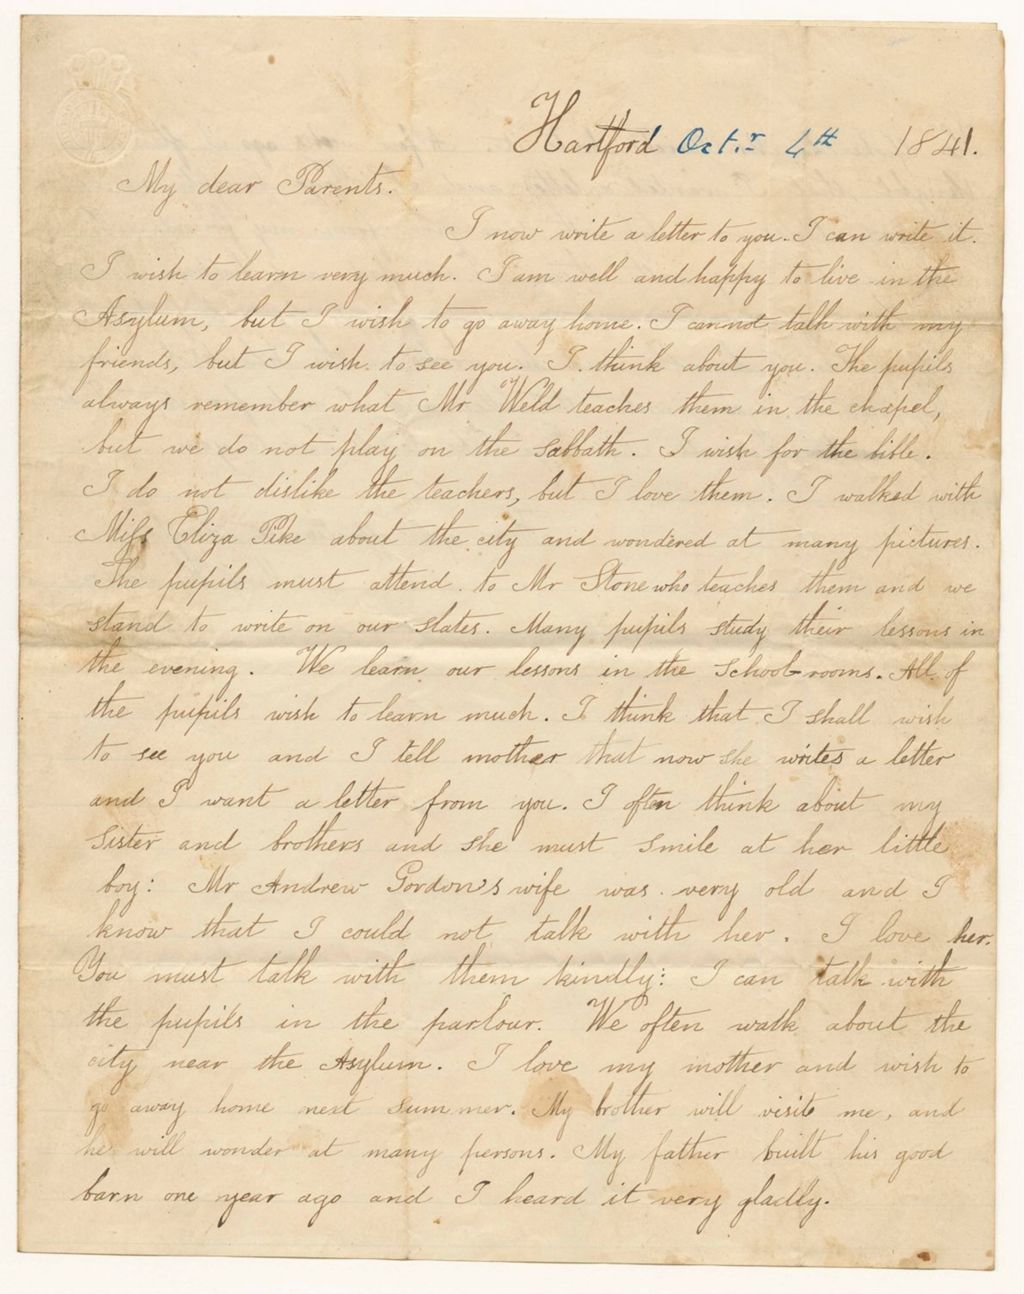 Hartford Oct.r 4th 1841.
My dear Parents.
I now write a letter to you. I can write it.
I wish to learn very much. I am well and happy to live in the
Asylum, but I wish to go away home. I cannot talk with my
friends, but I wish to see you. I think about you. The pupils
always remember what Mr Weld teaches them in the chapel,
but we do not play on the Sabbath. I wish for the bible.
I do not dislike the teachers, but I love them. I walked with
Miss Eliza Pike about the city and wondered at many pictures.
The pupils must attend to Mr Stone who teaches them and we
stand to write on our slates. Many pupils study their lessons in
the evening. We learn our lessons in the School-rooms. All of
the pupils wish to learn much. I think that I shall wish
to see you and I tell mother that now she writes a letter
and I want a letter from you. I often think about my
Sister and brothers and she must smile at her little
boy: Mr Andrew Gordon's wife was very old and I
know that I could not talk with her. I love her.
You must talk with them kindly: I can talk with
the pupils in the parlour. We often walk about the
city near the Asylum. I love my mother and wish to
go away home next summer. My brother will visit me, and
he will wonder at many persons. My father built his good
barn one year ago and I heard it very gladly.